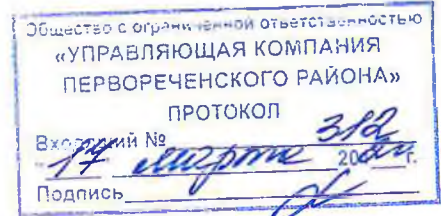 Общество с ограниченной ответственностью
«УПРАВЛЯЮЩАЯ КОМПАНИЯ
ПЕРВОРЕЧЕНСКОГО РАЙОНА»
ПРОТОКОЛ
Входящий № 312
17 марта 20 г.
Подпись